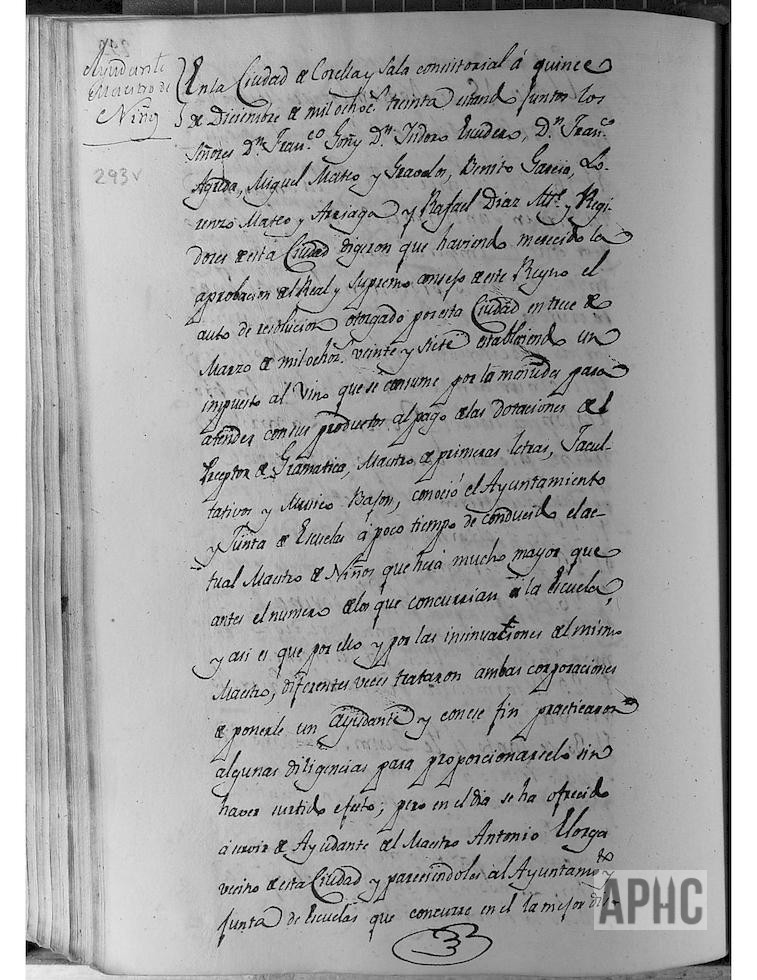 Ayudante
Maestro de
Niños
293v
En la Ciudad de Corella y Sala consistorial á quince
de Diciembre de mil ochoc.s treinta estando juntos los
Señores D.n Fran.co Goñy D.n Isidoro Escudero, D.n Fran.co
Agreda, Miguel Mateo y Gravalos, Benito Garcia, Lo-
renzo Mateo y Arriaga y Rafael Diaz Alc.e y Regi-
dores de esta Ciudad digeron que haviendo merecido la
aprobacion del Real y Supremo consejo de este Reyno el
auto de resolucion otorgado por esta Ciudad en trece de
Marzo de mil ochoz.s veinte y siete estableciendo un
impuesto al vino que se consume por la menuda para
atender con sus productos al pago de las dotaciones del
Preceptor de Gramatica, Maestro de primeras letras, Facul-
tativos y Musico Bajon, conoció el Ayuntamiento
y Junta de Escuelas á poco tiempo de conducido el ac-
tual Maestro de Niños que hera mucho mayor que
antes el numero de los que concurrian á la Escuela,
y asi es que por ello y por las insinuaciones del mismo
Maestro, diferentes veces trataron ambas corporaciones
de ponerle un Ayudante y con ese fin practicaron
algunas diligencias para proporcionarselo sin
haver surtido efecto; pero en el dia se ha ofrecido
á servir de Ayudante del Maestro Antonio Llorga
vecino de esta Ciudad y pareciendoles al Ayuntam.to y
Junta de Escuelas que concurre en el la mejor dis-
APHC